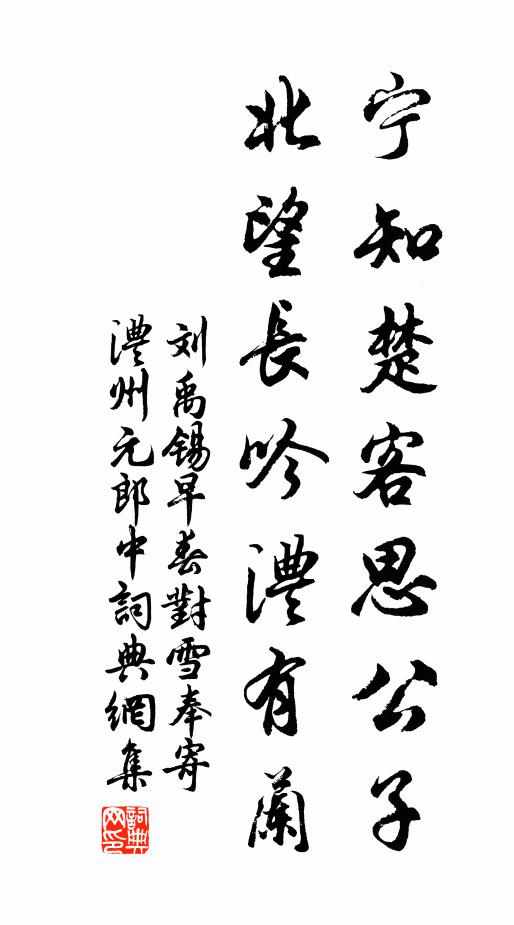 宁知楚客思公子
北望長吟澧有蘭
刘禹锡早春對雪奉寄
澧州元郎中詞典網集
詞典网印